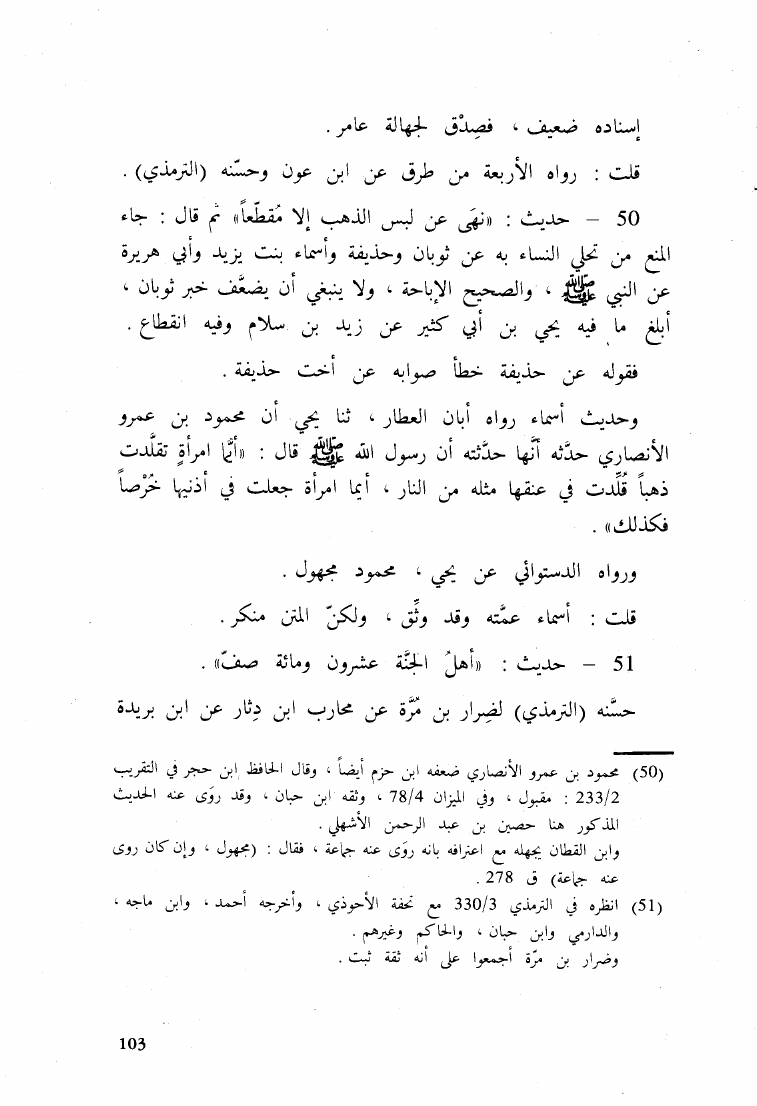 إسناده ضعيف ، فصِدْق لجهالة عامر .
قلت : رواه الأربعة من طرق عن ابن عون وحسَّنه (الترمذي) .
50 – حديث : «نهَى عن لبس الذهب إلا مُقطَّعاً» ثم قال : جاء
المنع من تحلي النساء به عن ثوبان وحذيفة وأسماء بنت يزيد وأبي هريرة
عن النبي ﷺ ، والصحيح الإباحة ، ولا ينبغي أن يضعَّف خبر ثوبان ،
أبلغ ما فيه يحي بن أبي كثير عن زيد بن سلام وفيه انقطاع .
فقوله عن حذيفة خطأ صوابه عن أخت حذيفة .
وحديث أسماء رواه أبان العطار ، ثنا يحي أن محمود بن عمرو
الأنصاري حدَّثه أنَّها حدَّثته أن رسول الله ﷺ قال : «أيَّما امرأةٍ تقلَّدت
ذهباً قُلِّدت في عنقها مثله من النار ، أيما امرأة جعلت في أذنيها خُرْصاً
فكذلك» .
ورواه الدستوائي عن يحي ، محمود مجهول .
قلت : أسماء عمَّته وقد وثِّق ، ولكنّ المتن منكر .
51 – حديث : «أهلُ الجنَّة عشرون ومائة صفّ» .
حسَّنه (الترمذي) لضِرار بن مُرَّة عن محارب ابن دِثار عن ابن بريدة
(50) محمود بن عمرو الأنصاري ضعفه ابن حزم أيضاً ، وقال الحافظ ابن حجر في التقريب
233/2 : مقبول ، وفي الميزان 78/4 ، وثقه ابن حبان ، وقد روَى عنه الحديث
المذكور هنا حصين بن عبد الرحمن الأشهلي .
وابن القطان يجهله مع اعترافه بانه روَى عنه جماعة ، فقال : (مجهول ، وإن كان روى
عنه جماعة) ق 278 .
(51) انظره في الترمذي 330/3 مع تحفة الأحوذي ، وأخرجه أحمد ، وابن ماجه ،
والدارمي وابن حبان ، والحاكم وغيرهم .
وضرار بن مرّة أجمعوا على أنه ثقة ثبت .
103